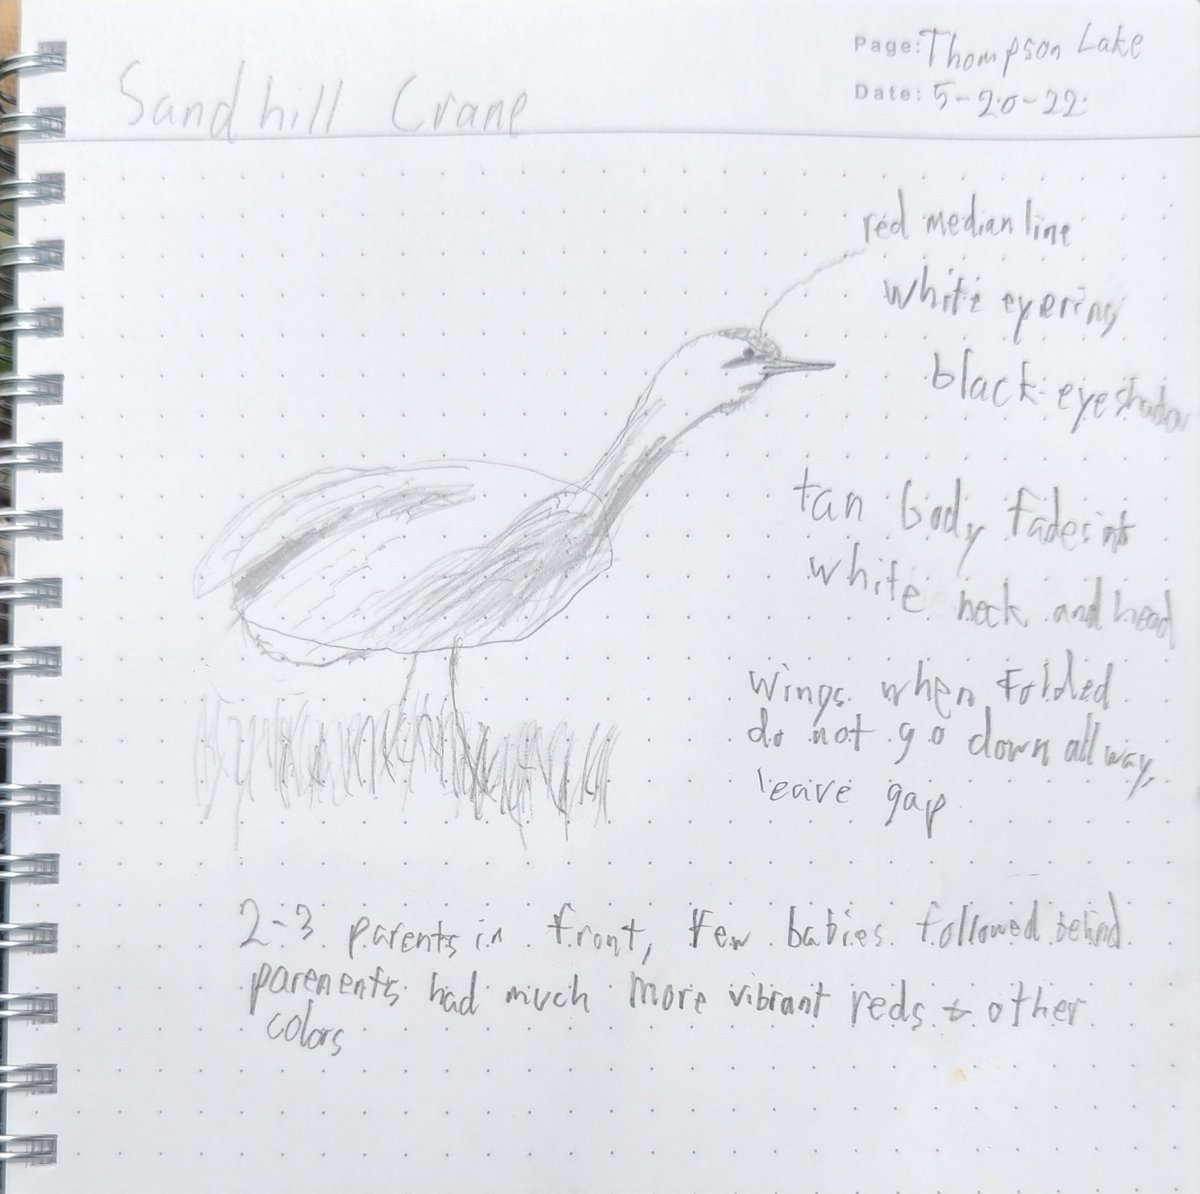 Page: Thompson Lake
Date: 5-20-22
Sandhill Crane
red median line
white eyering
black eyeshadow
tan body fades int
white neck and head
wings when folded
do not go down all way,
leave gap
2-3 parents in front, few babies followed behind
parenents had much more vibrant reds & other
colors